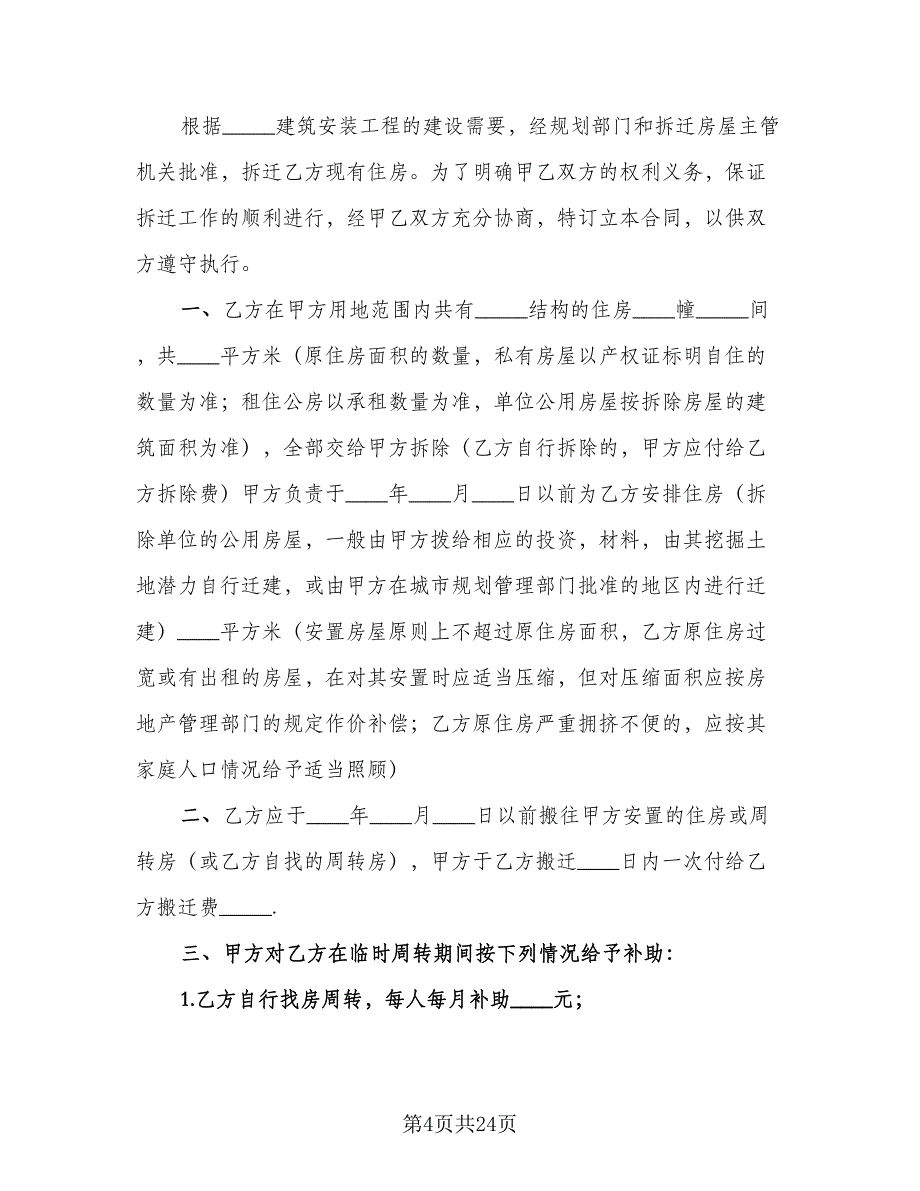 根据_____建筑安装工程的建设需要，经规划部门和拆迁房屋主管
机关批准，拆迁乙方现有住房。为了明确甲乙双方的权利义务，保证
拆迁工作的顺利进行，经甲乙双方充分协商，特订立本合同，以供双
方遵守执行。
一、乙方在甲方用地范围内共有_____结构的住房____幢_____间
，共____平方米（原住房面积的数量，私有房屋以产权证标明自住的
数量为准；租住公房以承租数量为准，单位公用房屋按拆除房屋的建
筑面积为准），全部交给甲方拆除（乙方自行拆除的，甲方应付给乙
方拆除费）甲方负责于____年____月____日以前为乙方安排住房（拆
除单位的公用房屋，一般由甲方拨给相应的投资，材料，由其挖掘土
地潜力自行迁建，或由甲方在城市规划管理部门批准的地区内进行迁
建）____平方米（安置房屋原则上不超过原住房面积，乙方原住房过
宽或有出租的房屋，在对其安置时应适当压缩，但对压缩面积应按房
地产管理部门的规定作价补偿；乙方原住房严重拥挤不便的，应按其
家庭人口情况给予适当照顾）
二、乙方应于____年____月____日以前搬往甲方安置的住房或周
转房（或乙方自找的周转房），甲方于乙方搬迁____日内一次付给乙
方搬迁费_____.
三、甲方对乙方在临时周转期间按下列情况给予补助：
1.乙方自行找房周转，每人每月补助____元；
第4页共24页